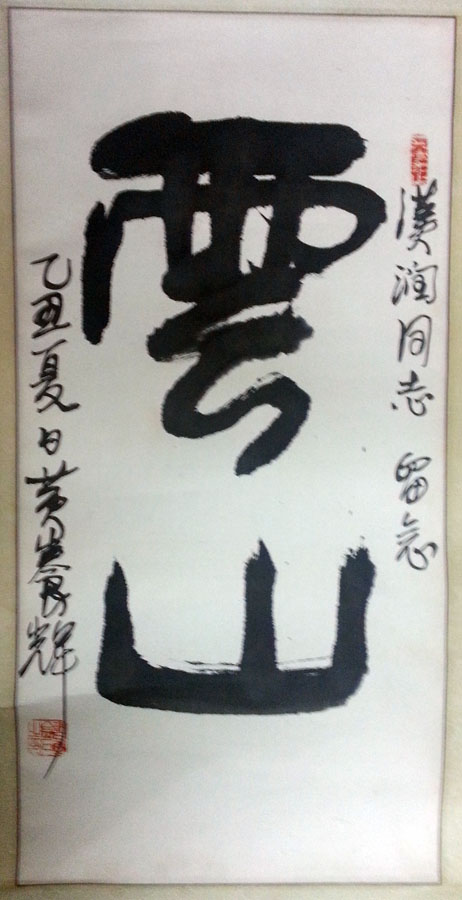 漢润同志 留念
雲山
乙丑夏日黄養輝